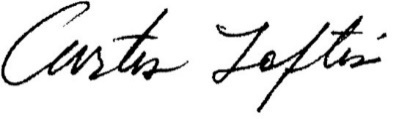 Curtis Loftis